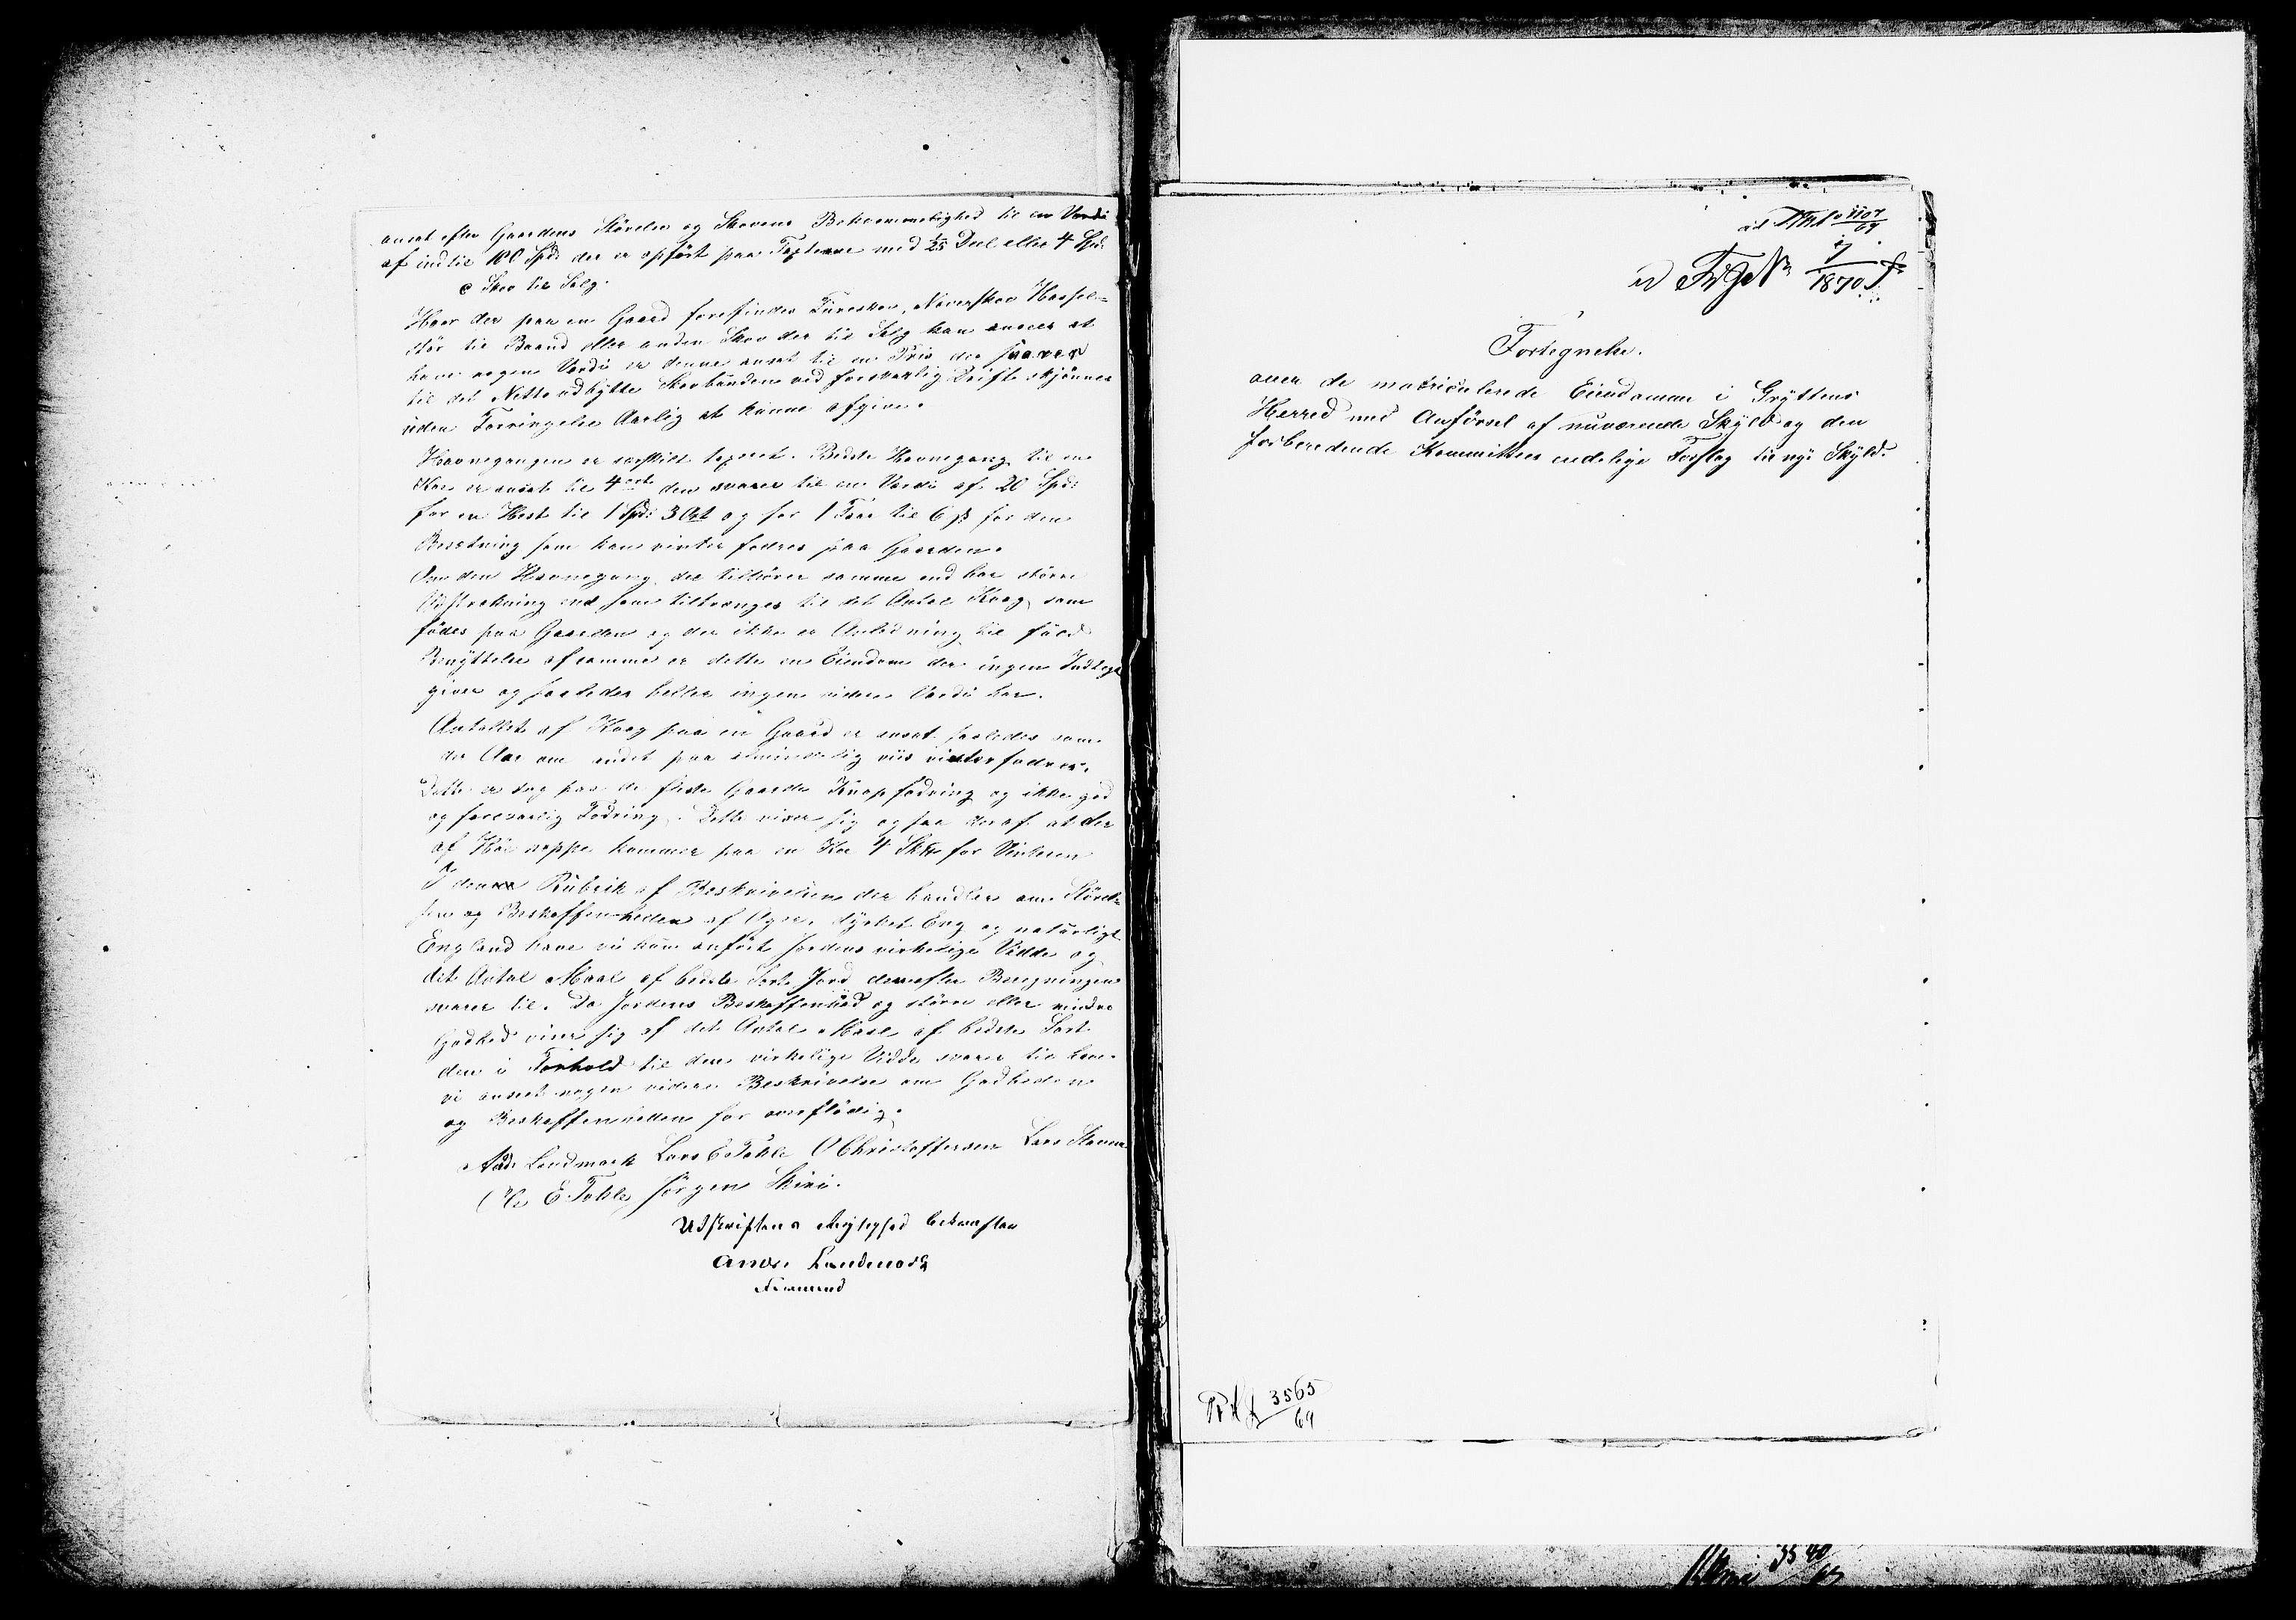 ansat efter Gaardens Störelse og Skovens Bekvemmelighed til en Værdi
af indtil 100 Spd: der er opfört paa Taxterne med 1/25 Deel eller 4 Spd:
c Skov til Salg.
Hvor der paa en Gaard forefindes Fureskov, Næverskov Hassel-
skov til Baand eller anden Skov der til Salg kan ansees at
have nogen Værdi er denne ansat til en Priis der svarer
til det Netto udbytte Skovbunden ved forsvarlig Drift skjönnes
uden Forringelse Aarlig at kunne afgive.
Havnegangen er særskilt taxeret. Bedste Havnegang til en
Koe er ansat til 4 ort der svarer til en Værdi af 20 Spd:
for en Hest til 1 Spd: 3 Ort og for 1 Faar til 6 ß for den
Besætning som kan vinter fodres paa Gaarden.
Om den Havnegang der tilhörer samme end har större
Udstrækning end som tiltrænges til det Antal Kreag som
födes paa Gaarden og der ikke er Anledning til fuld
Benyttelse af samme er dette en Eiendom der ingen Indtægt
giver og saaledes heller ingen videre Værdi har.
Antallet af Kreag paa en Gaard er ansat saaledes som
der Aar om andet paa almindelig viis vinterfodres.
Dette er dog paa de fleste Gaarde Knap fodring og ikke god
og forsvarlig Fodring. Dette viser sig ogsaa deraf at der
af Höe neppe kommer paa en Koe 4 for Vinteren
I denne Rubrik af Beskrivelsen der handler om Störel-
sen og Beskaffenheden af Ager, dyrket Eng og naturligt
England have vi kun anfört Jordens virkelige Vidde og
det Antal Maal af bedste Sort Jord den efter Beregningen
svarer til. Da Jordens Beskaffenhed og större eller mindre
Godhed viser sig af det Antal Maal af bedste Sort
den i Forhold til den virkelige Vidde svarer til have
vi anseet nogen videre Beskrivelse om Godheden
og Beskaffenheden for overflödig.
Andr Landmark Lars E Tokle O Christoffersen Lars
E. Tokle Jörgen Skiri.
Udskriftens Rigtighed bekræfter
Andr Landmark
Formand
ad
ad 7/1870
Fortegnelse.
over de matriculerede Eiendomme i Gryttens
Herred med Anförsel af nuværende Skyld og den
forberedende Kommittees endelige Forslag til ny Skyld.
3565/69